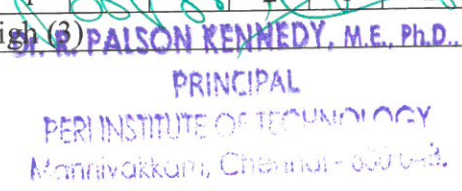 igh (3)
Dr. R. PALSON KENNEDY, M.E., Ph.D.,
PRINCIPAL
PERI INSTITUTE OF TECHNOLOGY
Mannivakkam, Chennai - 600 048.